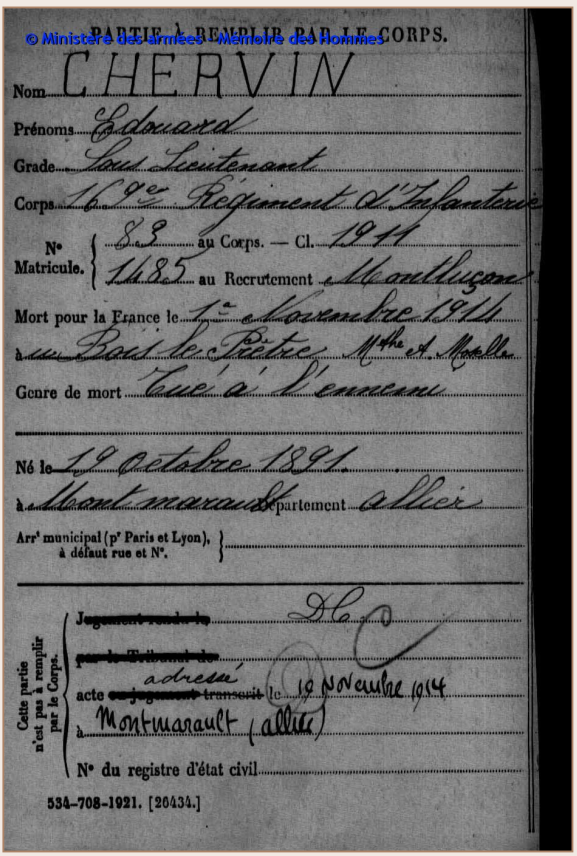 PARTIE À REMPLIR PAR LE CORPS.
© Ministère des armées - Mémoire des Hommes
Nom CHERVIN
Prénoms Edouard
Grade Sous Lieutenant
Corps 169e Régiment d'Infanterie
N° Matricule. { 83 au Corps. — Cl. 1911
1485 au Recrutement Montluçon
Mort pour la France le 1er Novembre 1914
à au Bois le Prêtre Mthe & Moselle
Genre de mort Tué à l'ennemi
Né le 19 Octobre 1891.
à Montmarault Département Allier
Arrt municipal (pr Paris et Lyon), à défaut rue et N°. }
Cette partie n'est pas à remplir par le Corps.
Jugement rendu le DC
par le Tribunal de
adressé
acte ou jugement transcrit le 19 Novembre 1914
à Montmarault (allier)
N° du registre d'état civil
534-708-1921. [26434.]